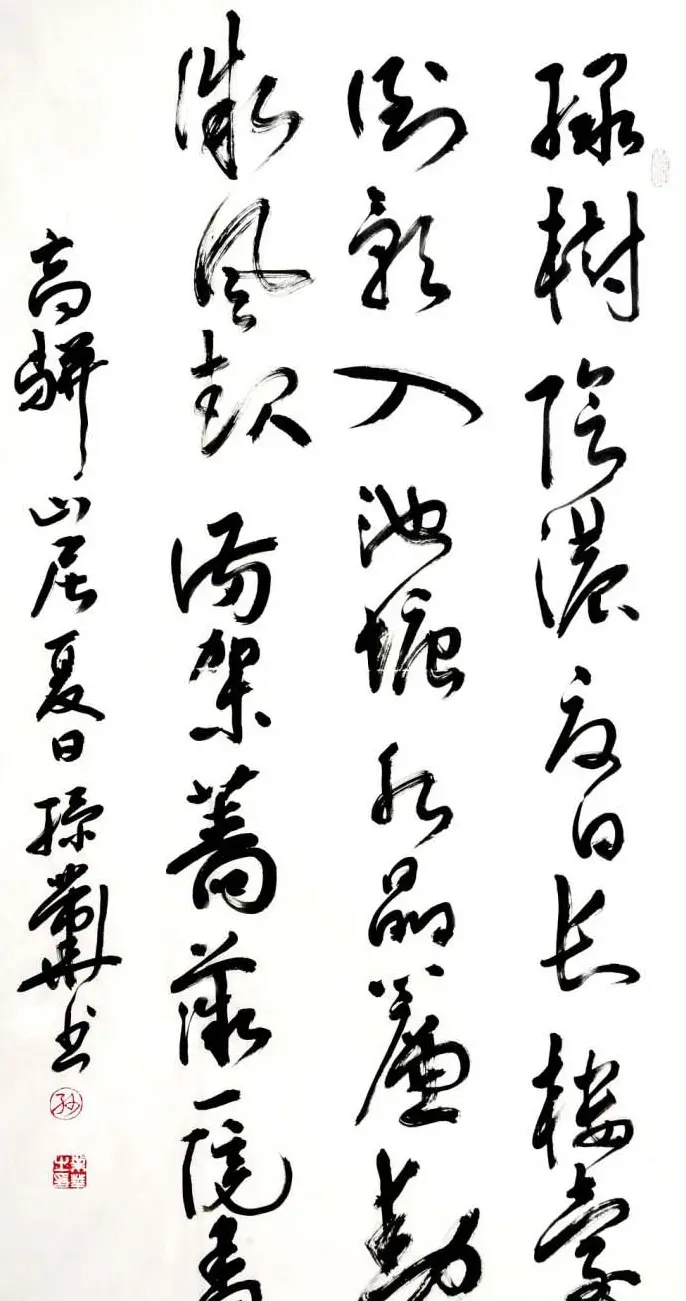 綠樹陰濃夏日长樓臺
倒影入池塘水晶簾動
微風起滿架薔薇一院香
高駢山居夏日孫书
孙